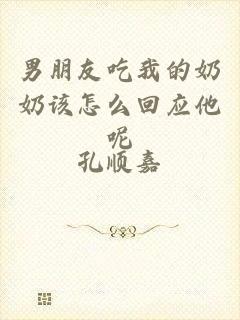 男朋友吃我的奶
奶该怎么回应他
呢
孔顺嘉